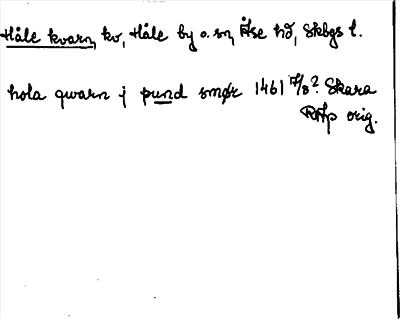 Håle kvarn, kv, Håle by o. sn, Åse hd, Skbgs l.
hola qwarn j pund smør 1461 17/8? Skara
RAp orig.